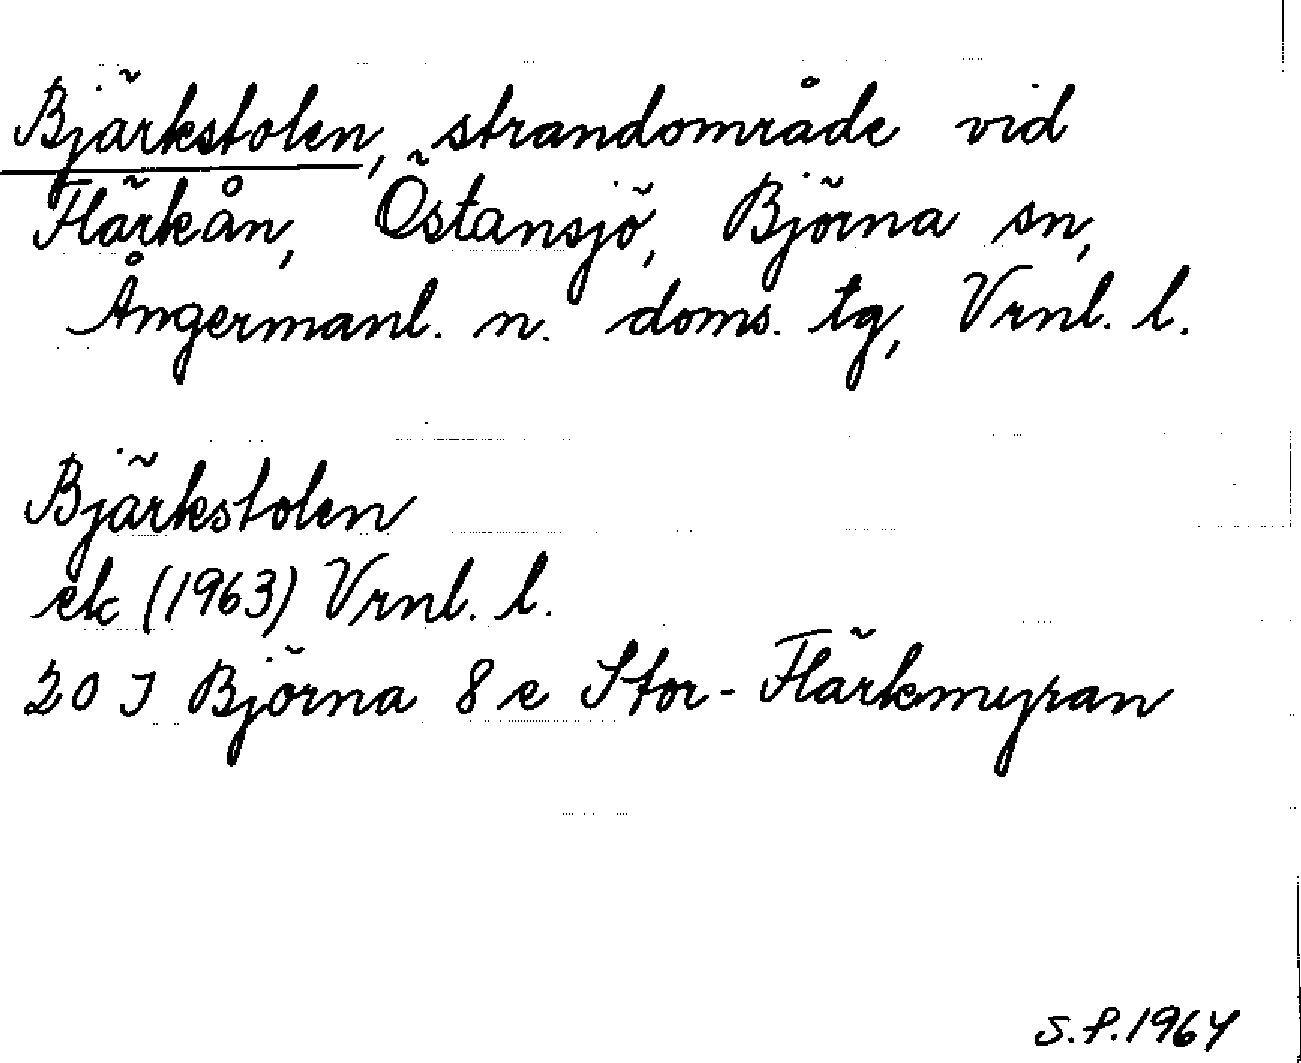 Bjärkstolen, strandområde vid
Flärkån, Östansjö, Björna sn,
Ångermanl. n. doms. tg, Vrnl. l.
Bjärkstolen
ek (1963) Vrnl. l.
20 J Björna 8 e Stor-Flärkmyran
S.P.1964